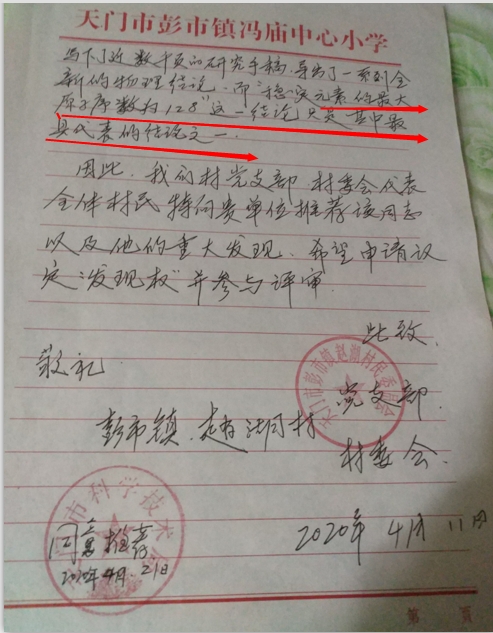 天门市彭市镇冯庙中心小学
写下了近数千页的研究手稿，导出了一系列全
新的物理结论，而“稳定元素的最大
原子序数为128”这一结论只是其中最
具代表的结论之一．
因此，我们村党支部、村委会代表
全体村民特向贵单位推荐该同志
以及他的重大发现、希望申请认
定“发现权”并参与评审．
此致．
敬礼
党支部．
彭市镇．赵湖村
村委会．
2020年4月11日
天门市彭市镇赵湖村民委员会
市科学技术
同意推荐
2020年4月21日
第 页